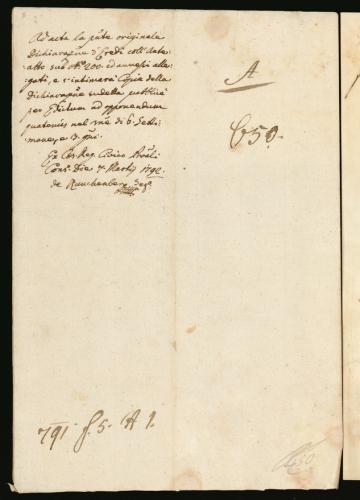 Ad acta la pñte originale
Dichiaraz̃ne d'Eredi coll' data
atto sub Nº. 200. ed annessi alle-
gati, e s'intimerà Copia della
Dichiaraz̃ne sudetta
per Edictum ad opponendum
quatenus nel ... di 6. Setti-
mane, e 3. gni.
Ex Ces. Reg. Civico Provli
Cons. Die 7. Martij 1792.
de Rauchenberg Segr
A
653.
791 f. 5. A 1.
450